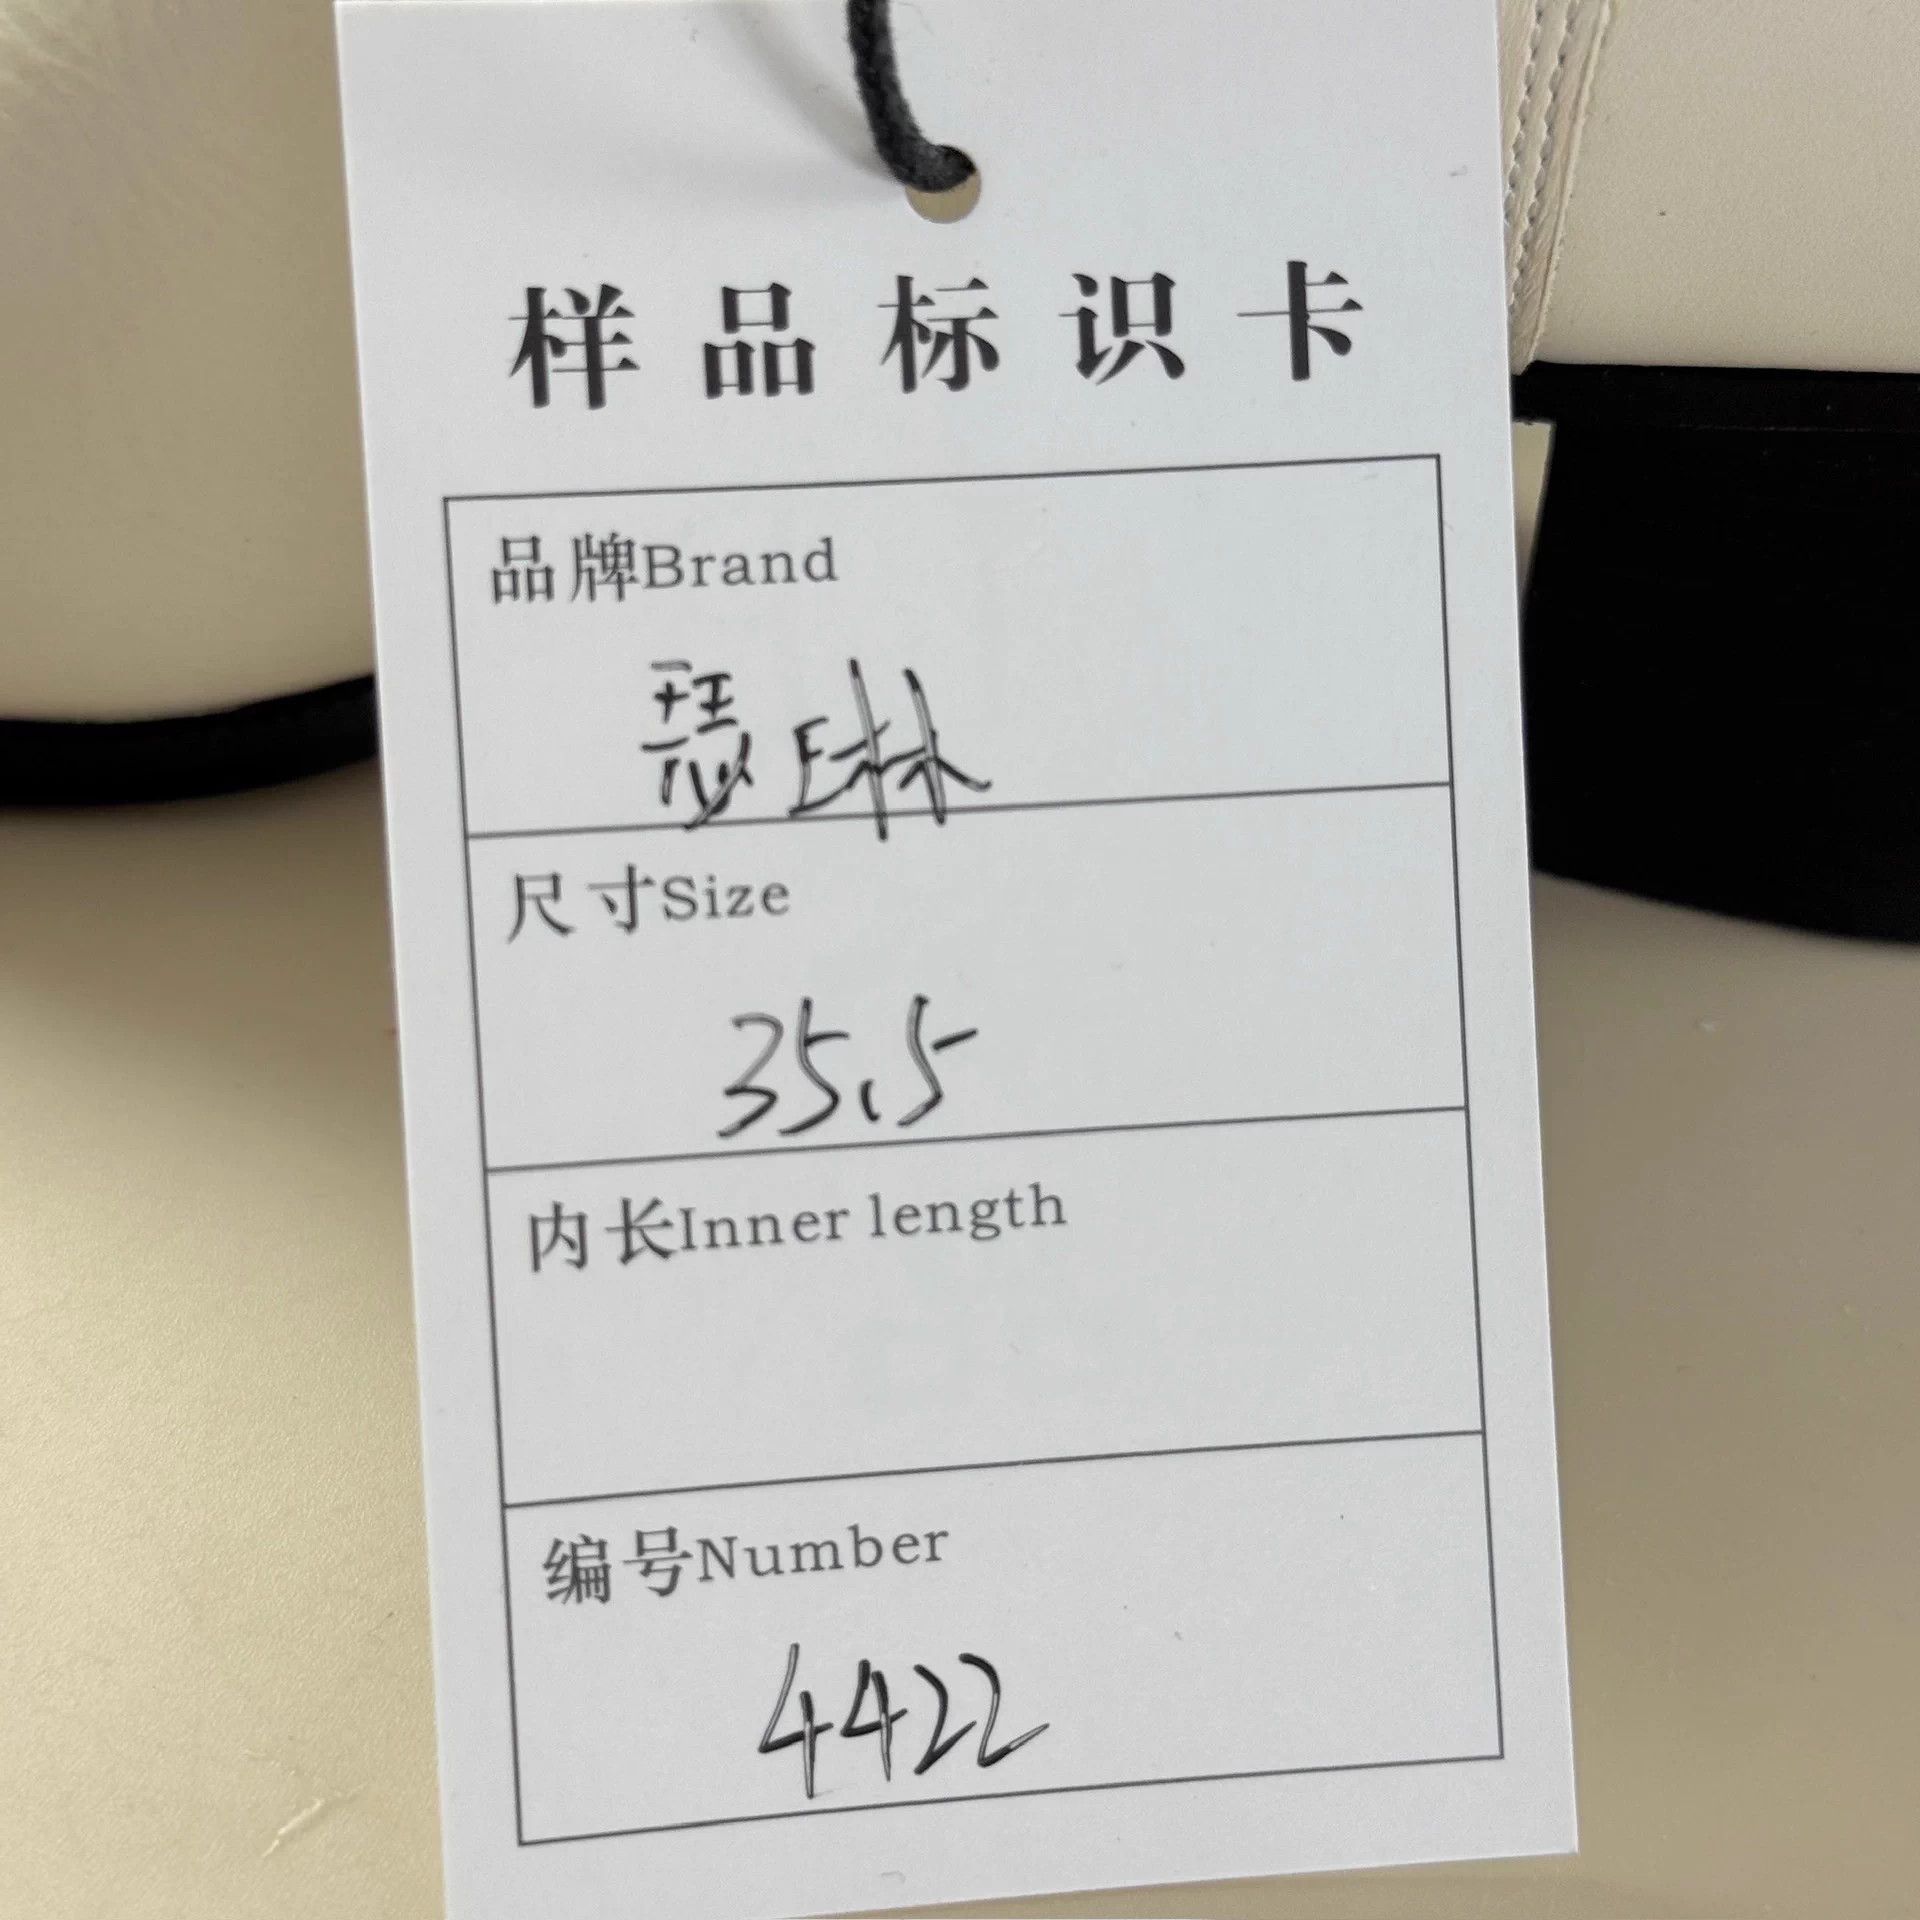 样品标识卡
品牌Brand
瑟琳
尺寸Size
35.5
内长Inner length
编号Number
4422